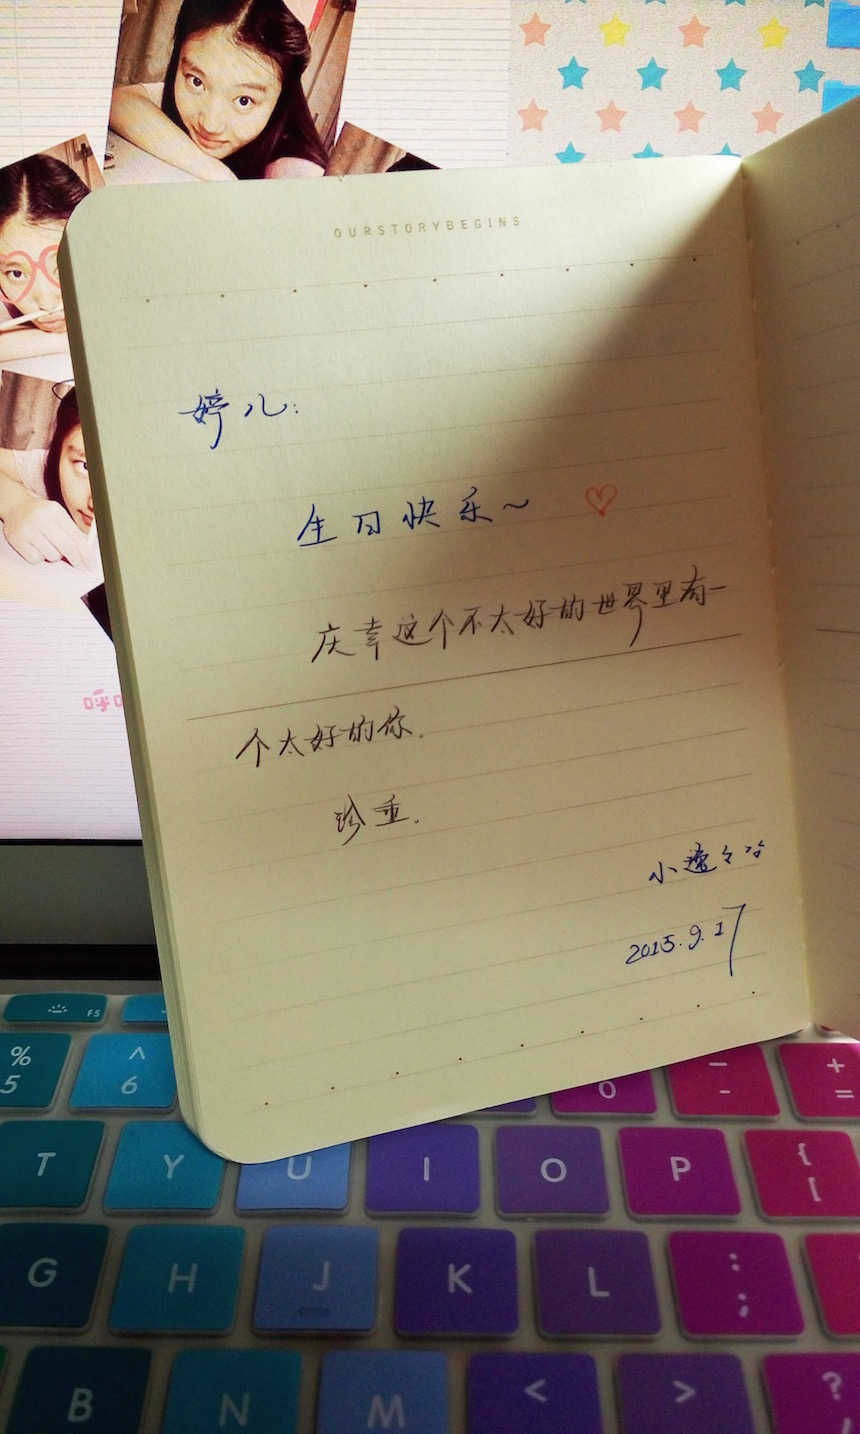 OURSTORYBEGINS
婷儿:
生日快乐~
庆幸这个不太好的世界里有一
个太好的你.
珍重.
小遼々
2015.9.17
呼
F5
% 5
^ 6
0
- -
+ =
T Y U I O P { [
G H J K L : ;
B N M < > ?